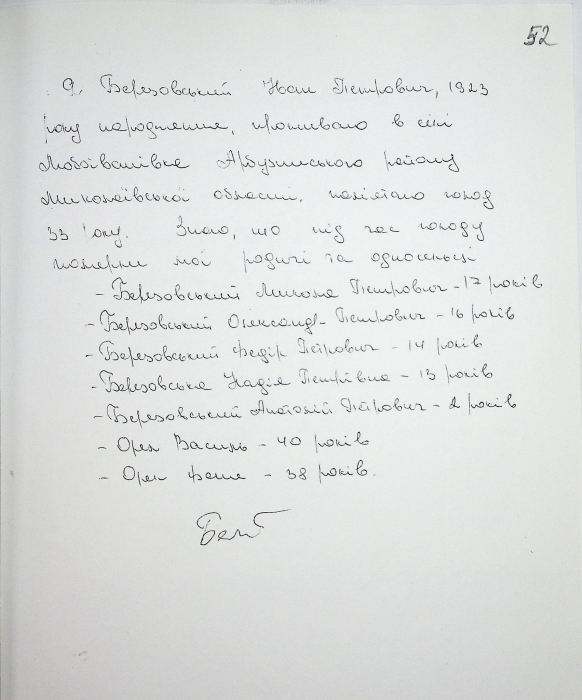 52
Я, Березовський Іван Петрович, 1923
року народження, проживаю в селі
Любоіванівка Арбузинського району
Миколаївської області, пам'ятаю голод
33 року. Знаю, що під час голоду
померли мої родичі та односельці
- Березовський Микола Петрович - 17 років
- Березовський Олександр Петрович - 16 років
- Березовський Федір Петрович - 14 років
- Березовська Надія Петрівна - 13 років
- Березовський Анатолій Петрович - 2 років
- Орел Василь - 40 років
- Орел - 38 років.